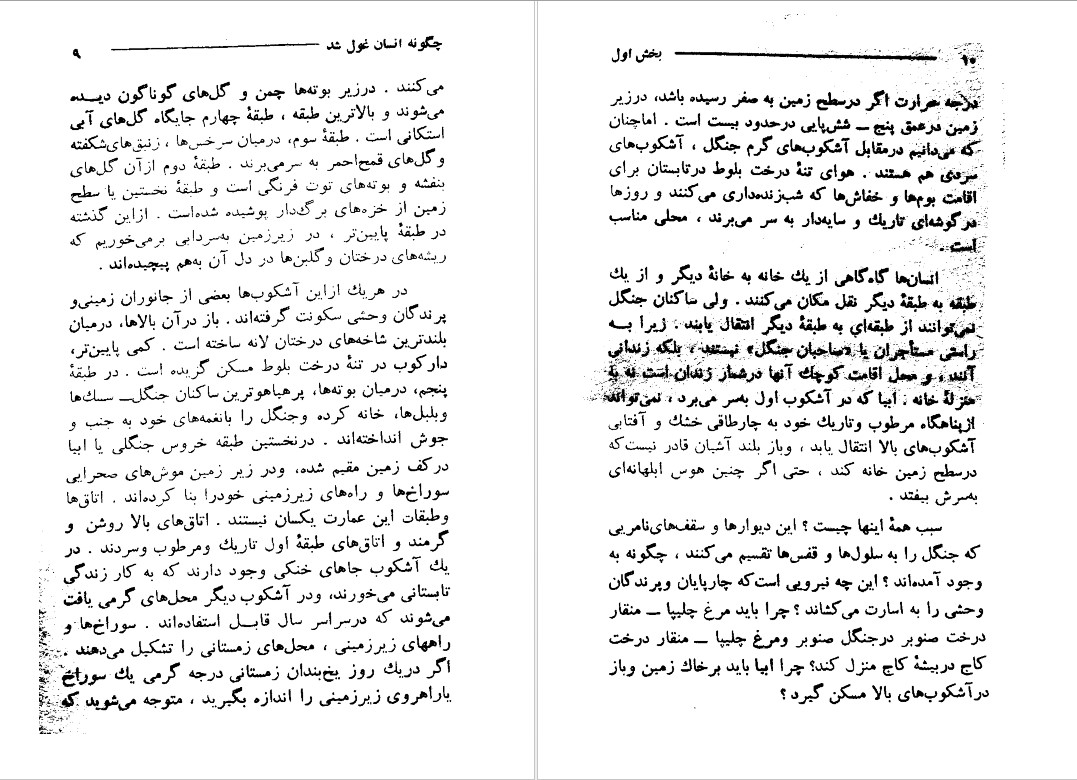 چگونه انسان غول شد ۹
می‌کنند . درزیر بوته‌ها چمن و گل‌های گوناگون دیده
می‌شوند و بالاترین طبقه ، طبقهٔ چهارم جایگاه گل‌های آبی
استکانی است . طبقهٔ سوم، درمیان سرخس‌ها ، زنبق‌های‌شکفته
وگل‌های قمح‌احمر به سرمی‌برند . طبقهٔ دوم ازآن گل‌های
بنفشه و بوته‌های توت فرنگی است و طبقهٔ نخستین یا سطح
زمین از خزه‌های برگ‌دار پوشیده شده‌است . ازاین گذشته
در طبقهٔ پایین‌تر ، در زیرزمین به‌سردابی برمی‌خوریم که
ریشه‌های درختان وگلبن‌ها در دل آن به‌هم پیچیده‌اند .
در هریك ازاین آشکوب‌ها بعضی از جانوران زمینی‌و
پرندگان وحشی سکونت گرفته‌اند . باز درآن بالاها، درمیان
بلندترین شاخه‌های درختان لانه ساخته است . کمی پایین‌تر،
دارکوب در تنهٔ درخت بلوط مسکن گزیده است . در طبقهٔ
پنجم، درمیان بوته‌ها، پرهیاهوترین ساکنان جنگل‌ــ سسك‌ها
وبلبل‌ها، خانه کرده وجنگل را بانغمه‌های خود به جنب و
جوش انداخته‌اند . درنخستین طبقه خروس جنگلی یا ابیا
درکف زمین مقیم شده، ودر زیر زمین موش‌های صحرایی
سوراخ‌ها و راه‌های زیرزمینی خودرا بنا کرده‌اند . اتاق‌ها
وطبقات این عمارت یکسان نیستند . اتاق‌های بالا روشن و
گرمند و اتاق‌های طبقهٔ اول تاریك ومرطوب وسردند . در
یك آشکوب جاهای خنکی وجود دارند که به کار زندگی
تابستانی می‌خورند، ودر آشکوب دیگر محل‌های گرمی یافت
می‌شوند که درسراسر سال قابل استفاده‌اند . سوراخ‌ها و
راههای زیرزمینی ، محل‌های زمستانی را تشکیل می‌دهند .
اگر دریك روز یخ‌بندان زمستانی درجه گرمی یك سوراخ
یاراهروی زیرزمینی را اندازه بگیرید ، متوجه می‌شوید که
۱۰ بخش اول
درجه حرارت اگر درسطح زمین به صفر رسیده باشد، درزیر
زمین درعمق پنج ــ شش‌پایی درحدود بیست است . اماچنان
که می‌دانیم درمقابل آشکوب‌های گرم جنگل ، آشکوب‌های
سردی هم هستند . هوای تنهٔ درخت بلوط درتابستان برای
اقامت بوم‌ها و خفاش‌ها که شب‌زنده‌داری می‌کنند و روزها
درگوشه‌ای تاریك و سایه‌دار به سر می‌برند ، محلی مناسب
است .
انسان‌ها گاه‌گاهی از یك خانه به خانهٔ دیگر و از یك
طبقه به طبقهٔ دیگر نقل مکان می‌کنند . ولی ساکنان جنگل
نمی‌توانند از طبقه‌ای به طبقهٔ دیگر انتقال یابند . زیرا به
راستی مستأجران یا «صاحبان جنگل» نیستند ، بلکه زندانی
آنند ، و محل اقامت کوچك آنها درشمار زندان است نه به
منزلهٔ خانه . ابیا که در آشکوب اول به‌سر می‌برد ، نمی‌تواند
ازپناهگاه مرطوب وتاریك خود به چارطاقی خشك و آفتابی
آشکوب‌های بالا انتقال یابد ، وباز بلند آشیان قادر نیست‌که
درسطح زمین خانه کند ، حتی اگر چنین هوس ابلهانه‌ای
به‌سرش بیفتد .
سبب همهٔ اینها چیست ؟ این دیوارها و سقف‌های‌نامریی
که جنگل را به سلول‌ها و قفس‌ها تقسیم می‌کنند ، چگونه به
وجود آمده‌اند ؟ این چه نیرویی است‌که چارپایان وپرندگان
وحشی را به اسارت می‌کشاند ؟ چرا باید مرغ چلیپا ــ منقار
درخت صنوبر درجنگل صنوبر ومرغ چلیپا ــ منقار درخت
کاج دربیشهٔ کاج منزل کند؟ چرا ابیا باید برخاك زمین وباز
درآشکوب‌های بالا مسکن گیرد ؟